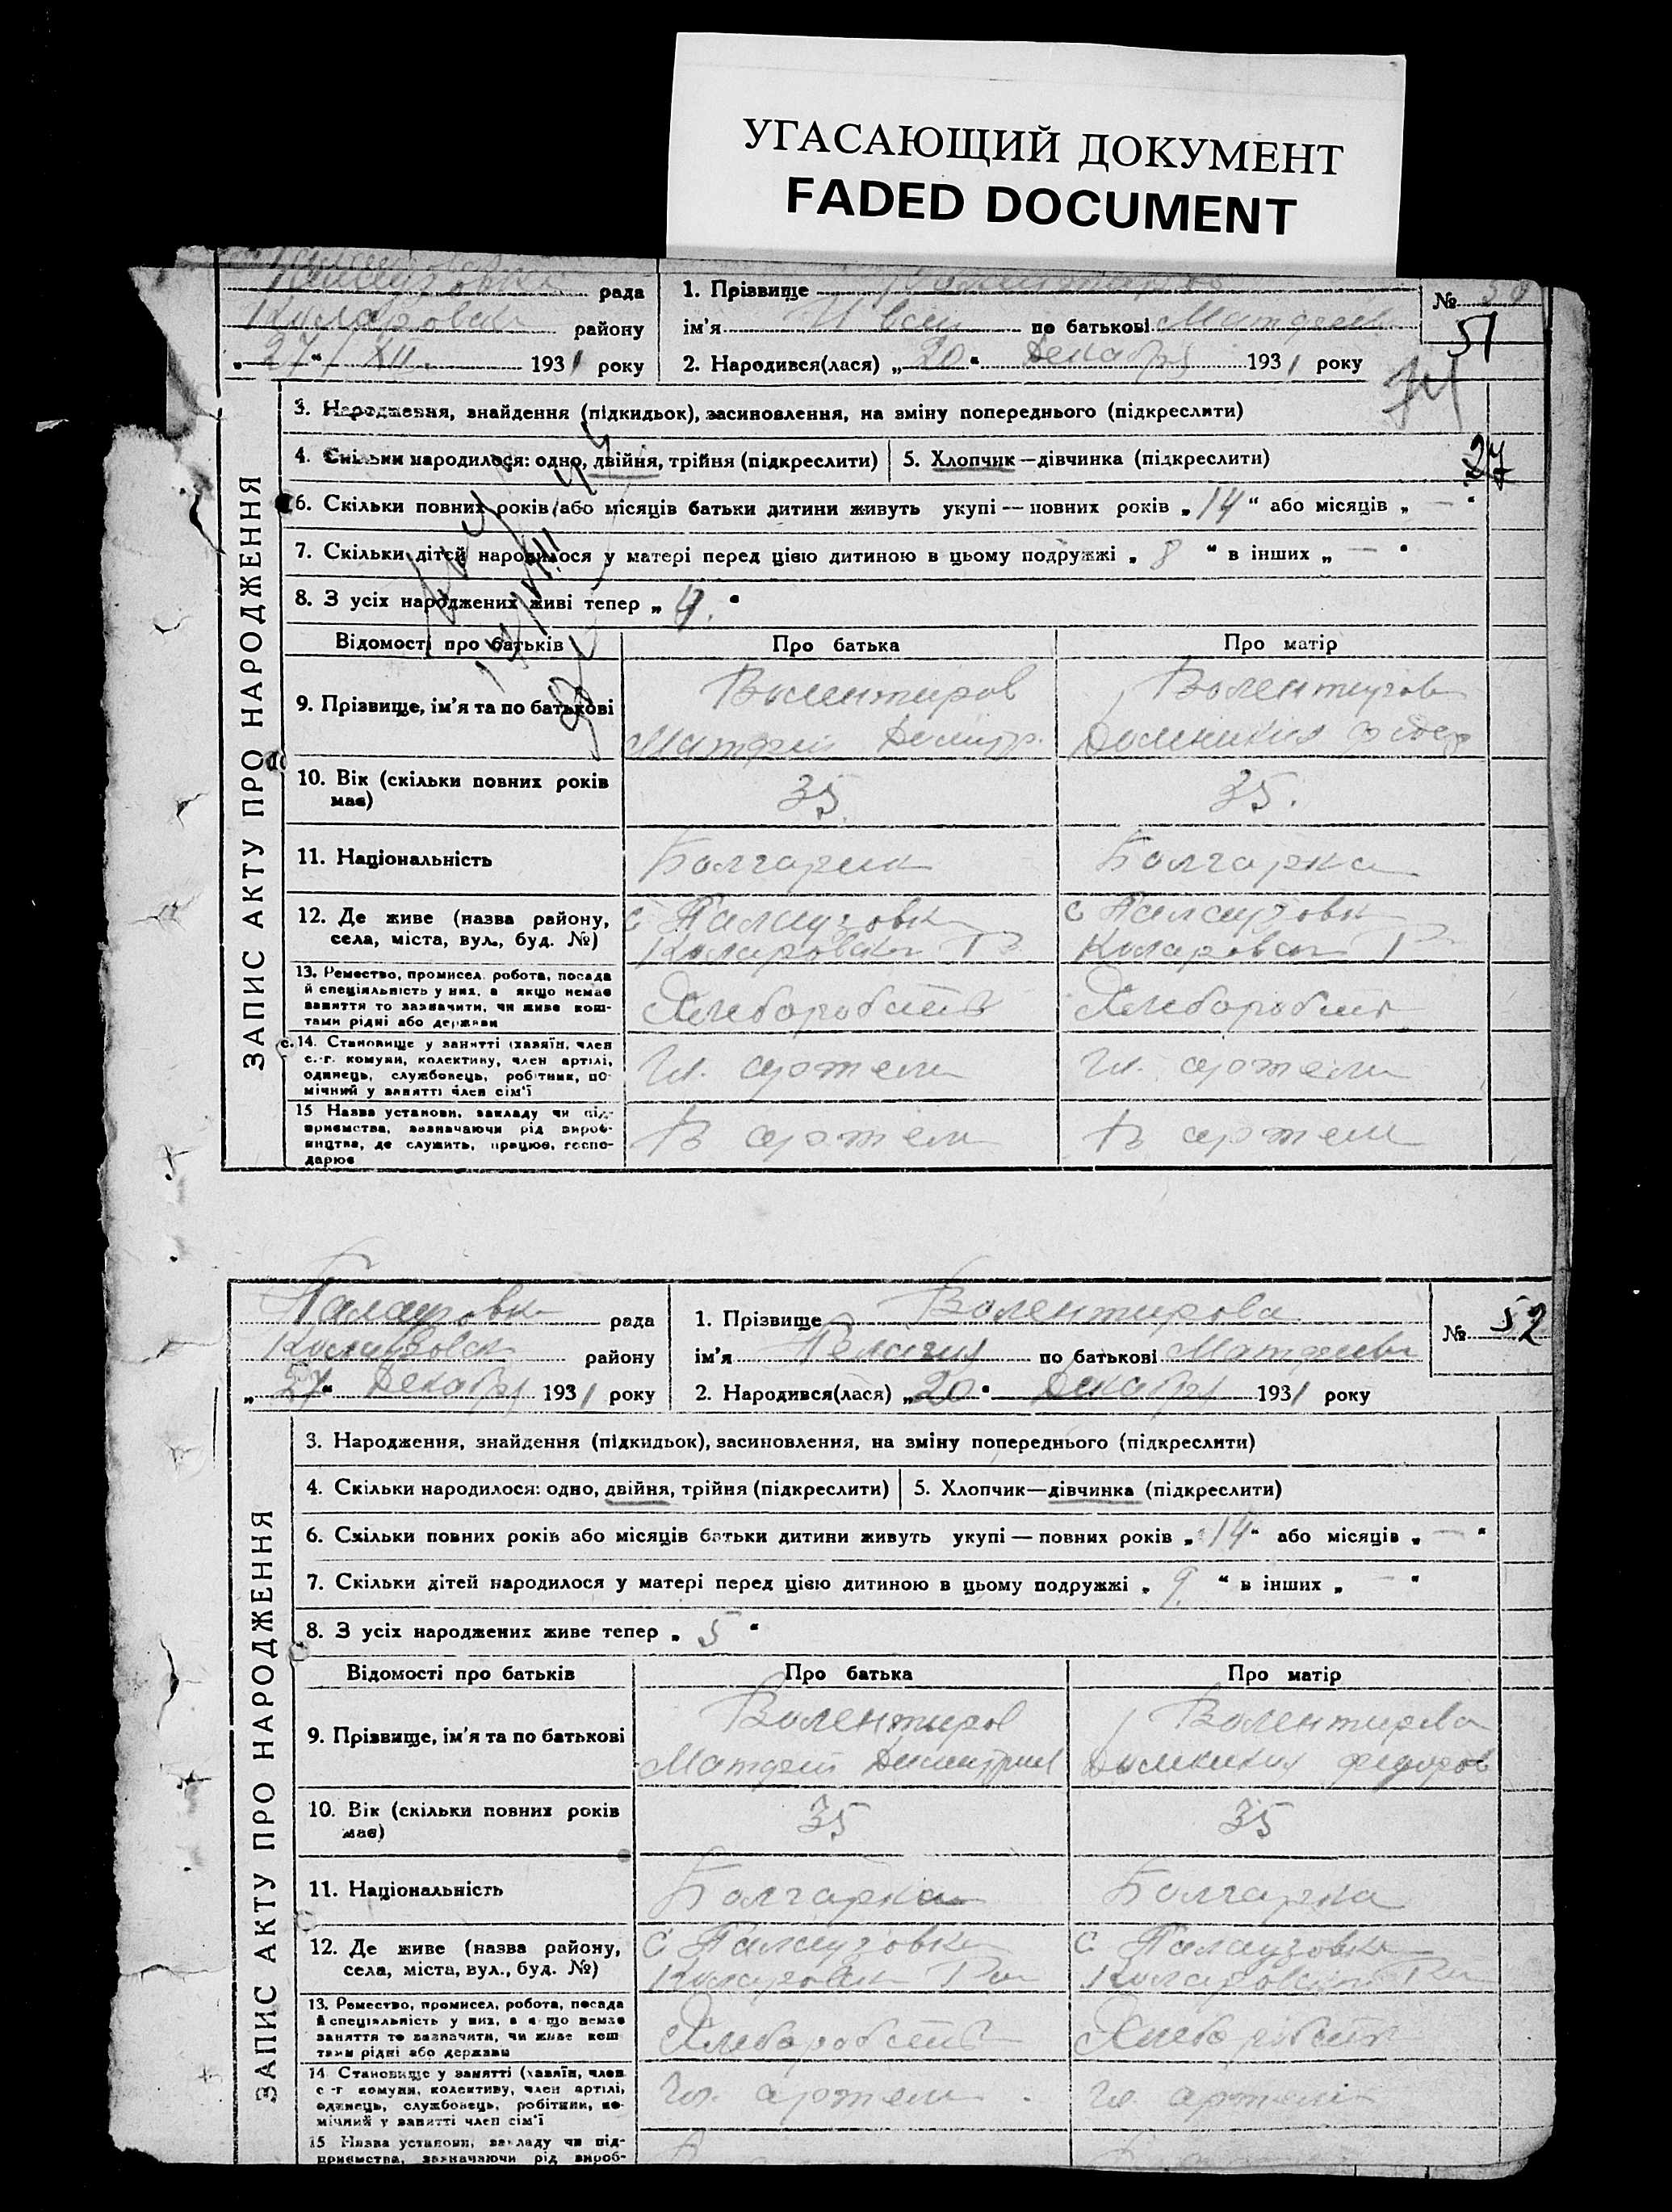 УГАСАЮЩИЙ ДОКУМЕНТ
FADED DOCUMENT
рада
району
" 27 " XII. 1931 року
1. Прізвище
ім'я Иван по батькові Матфеев
2. Народився(лася) „ 20 " Декабря 1931 року
№ 50
51
ЗАПИС АКТУ ПРО НАРОДЖЕННЯ
3. Народження, знайдення (підкидьок), засиновлення, на зміну попереднього (підкреслити)
4. Скільки народилося: одно, двійня, трійня (підкреслити) 5. Хлопчик—дівчинка (підкреслити)
27
6. Скільки повних років або місяців батьки дитини живуть укупі — повних років „ 14 " або місяців „ — "
7. Скільки дітей народилося у матері перед цією дитиною в цьому подружжі „ 8 " в інших „ — "
8. З усіх народжених живі тепер „ 4. "
Відомості про батьків Про батька Про матір
9. Прізвище, ім'я та по батькові
Валентиров Валентиров
Матфей Димитр. Домникия Федор
10. Вік (скільки повних років має) 35 35.
11. Національність Болгарин Болгарка
12. Де живе (назва району, села, міста, вул., буд. №)
с Палаузовка с Палаузовк
Коларовск Р Коларовск Р
13. Ремество, промисел, робота, посада й спеціяльність у них, а якщо немає заняття то зазначити, чи живе коштами рідні або держави
Хлеборобств Хлеборобств
14. Становище у занятті (хазяїн, член с.-г. комуни, колективу, член артілі, одинець, службовець, робітник, помічний у занятті член сім'ї
Чл. артели Чл. артели
15 Назва установи, закладу чи підприємства, зазначаючи рід виробництва, де служить, працює, господарює
В артели В артели
Палаузовк рада
району
„ 27 " Декабря 1931 року
1. Прізвище Валентирова
ім'я Пелагия по батькові Матфеевн
2. Народився(лася) „ 20 " Декабря 1931 року
№ 52
ЗАПИС АКТУ ПРО НАРОДЖЕННЯ
3. Народження, знайдення (підкидьок), засиновлення, на зміну попереднього (підкреслити)
4. Скільки народилося: одно, двійня, трійня (підкреслити) 5. Хлопчик—дівчинка (підкреслити)
6. Скільки повних років або місяців батьки дитини живуть укупі — повних років „ 14 " або місяців „ — "
7. Скільки дітей народилося у матері перед цією дитиною в цьому подружжі „ 9. " в інших „ — "
8. З усіх народжених живе тепер „ 5 "
Відомості про батьків Про батька Про матір
9. Прізвище, ім'я та по батькові
Валентиров Валентирова
Матфей Димитриев Домникия Федоров
10. Вік (скільки повних років має) 35 35
11. Національність Болгарка Болгарка
12. Де живе (назва району, села, міста, вул., буд. №)
С Палаузовка С Палаузовка
Коларовск Рн Коларовск Рн
13. Ремество, промисел, робота, посада й спеціяльність у них, а якщо немає заняття то зазначити, чи живе коштами рідні або держави
Хлеборобств Хлеборобств
14 Становище у занятті (хазяїн, член с.-г комуни, колективу, член артілі, одинець, службовець, робітник, помічний у занятті член сім'ї
Чл. артели Чл артели
15 Назва установи, закладу чи підприємства, зазначаючи рід вироб-